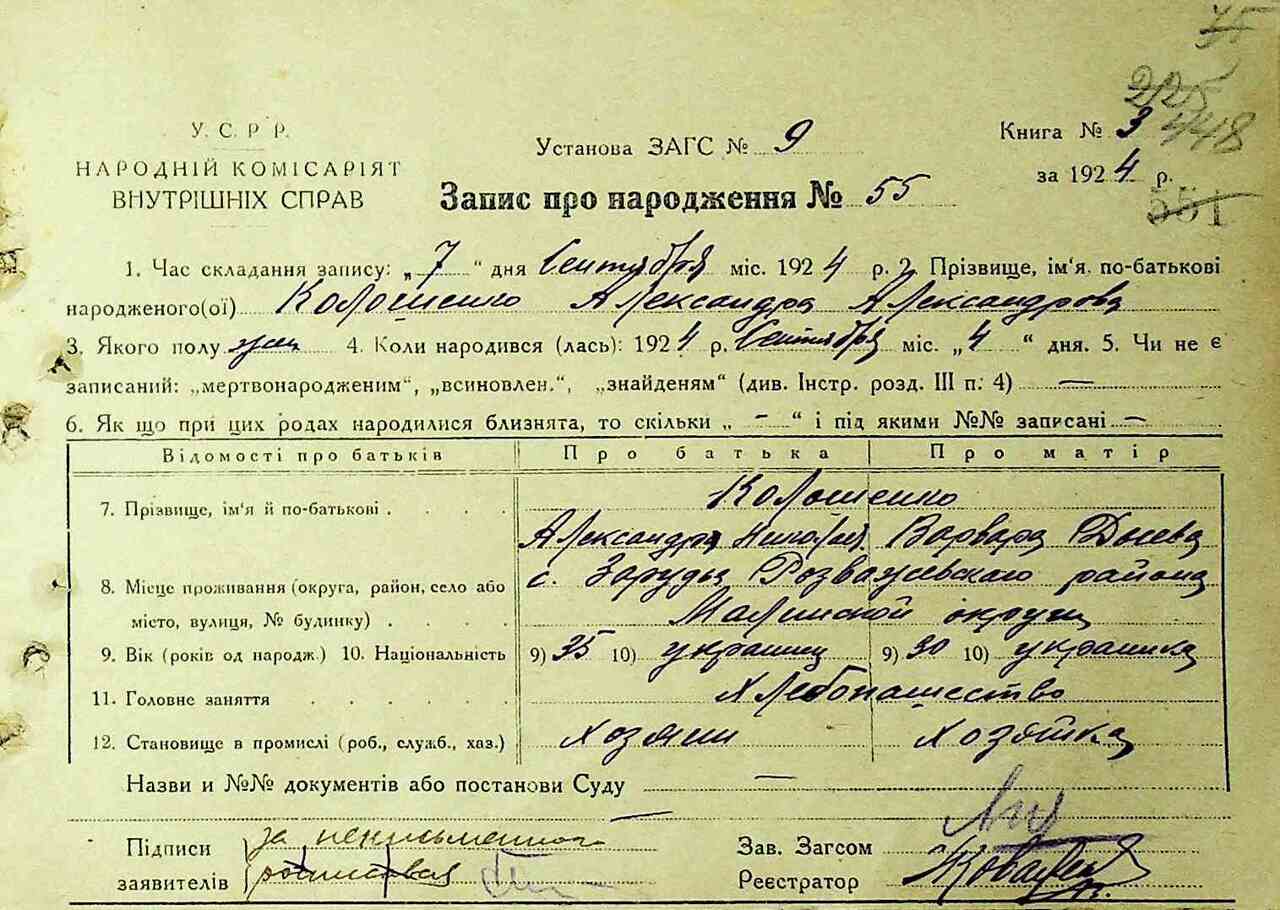 У. С. Р Р.
НАРОДНІЙ КОМІСАРІЯТ
ВНУТРІШНІХ СПРАВ
Установа ЗАГС № 9
Книга № 3
за 1924 р.
448
551
Запис про народження № 55
1. Час складання запису: „7“ дня Сентября міс. 1924 р. 2. Прізвище, ім'я, по-батькові
народженого(ої) Колошенко Александра Александрова
3. Якого полу жен 4. Коли народився (лась): 1924 р. Сентября міс. „4“ дня. 5. Чи не є
записаний: „мертвонародженим“, „всиновлен.“, „знайденям“ (див. Інстр. розд. III п. 4) —
6. Як що при цих родах народилися близнята, то скільки „ - “ і під якими №№ записані —
Відомості про батьків Про батька Про матір
7. Прізвище, ім'я й по-батькові . . . . Колошенко
Александр Николаев Варвара
8. Місце проживання (округа, район, село або с. Зарудья Розважевського района
місто, вулиця, № будинку) . . . . Малинской округи
9. Вік (років од народж.) 10. Національність 9) 35 10) украинец 9) 30 10) украинка
11. Головне заняття . . . . . . Хлебопашество
12. Становище в промислі (роб., служб., хаз.) Хозяин Хозяйка
Назви и №№ документів або постанови Суду —
Підписи за неписьменного
заявителів
Зав. Загсом
Реєстратор